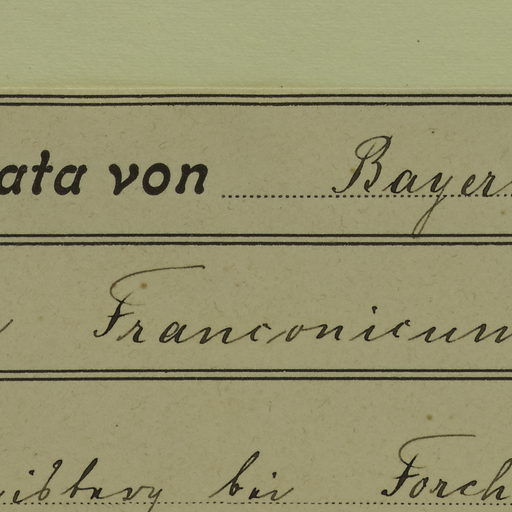 ata von Bayer
Franconicum
bei Forch